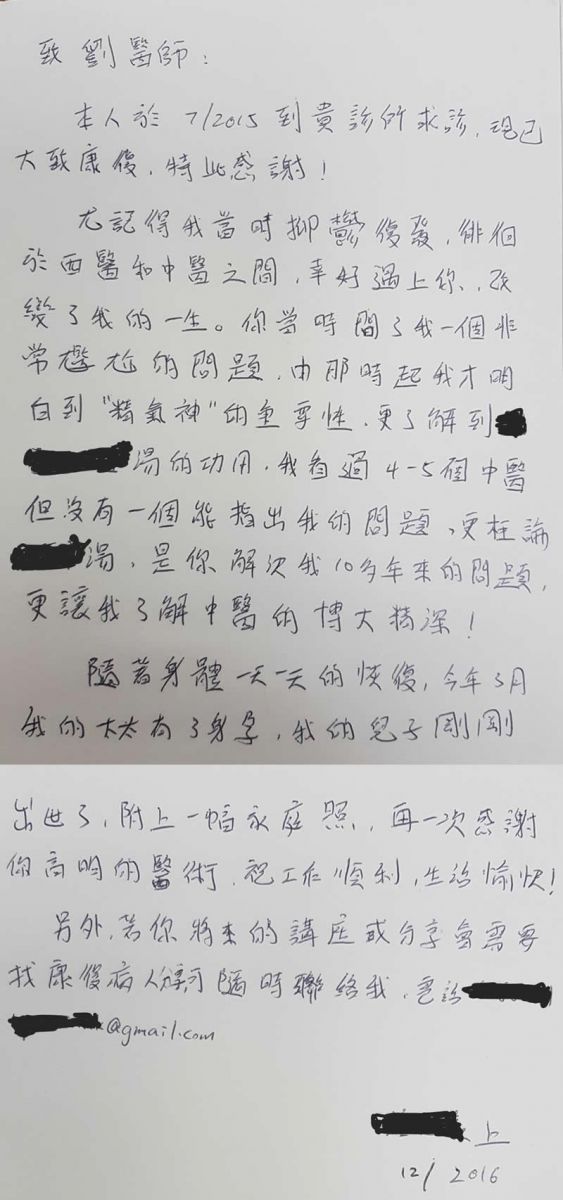 致劉醫師：
本人於 7/2015 到貴診所求診，現已
大致康復，特此感謝！
尤記得我當時抑鬱復發，徘徊
於西醫和中醫之間，幸好遇上你，改
變了我的一生。你當時問了我一個非
常尷尬的問題，由那時起我才明
白到"精氣神"的重要性，更了解到
湯的功用，我看過 4-5個中醫
但沒有一個能指出我的問題，更枉論
湯，是你解決我10多年來的問題，
更讓我了解中醫的博大精深！
隨著身體一天一天的恢復，今年3月
我的太太有了身孕，我的兒子剛剛
出世了，附上一幅家庭照，再一次感謝
你高明的醫術，祝工作順利，生活愉快！
另外，若你將來的講座或分享會需要
找康復病人分享可隨時聯絡我，電話
@gmail.com
上
12/ 2016